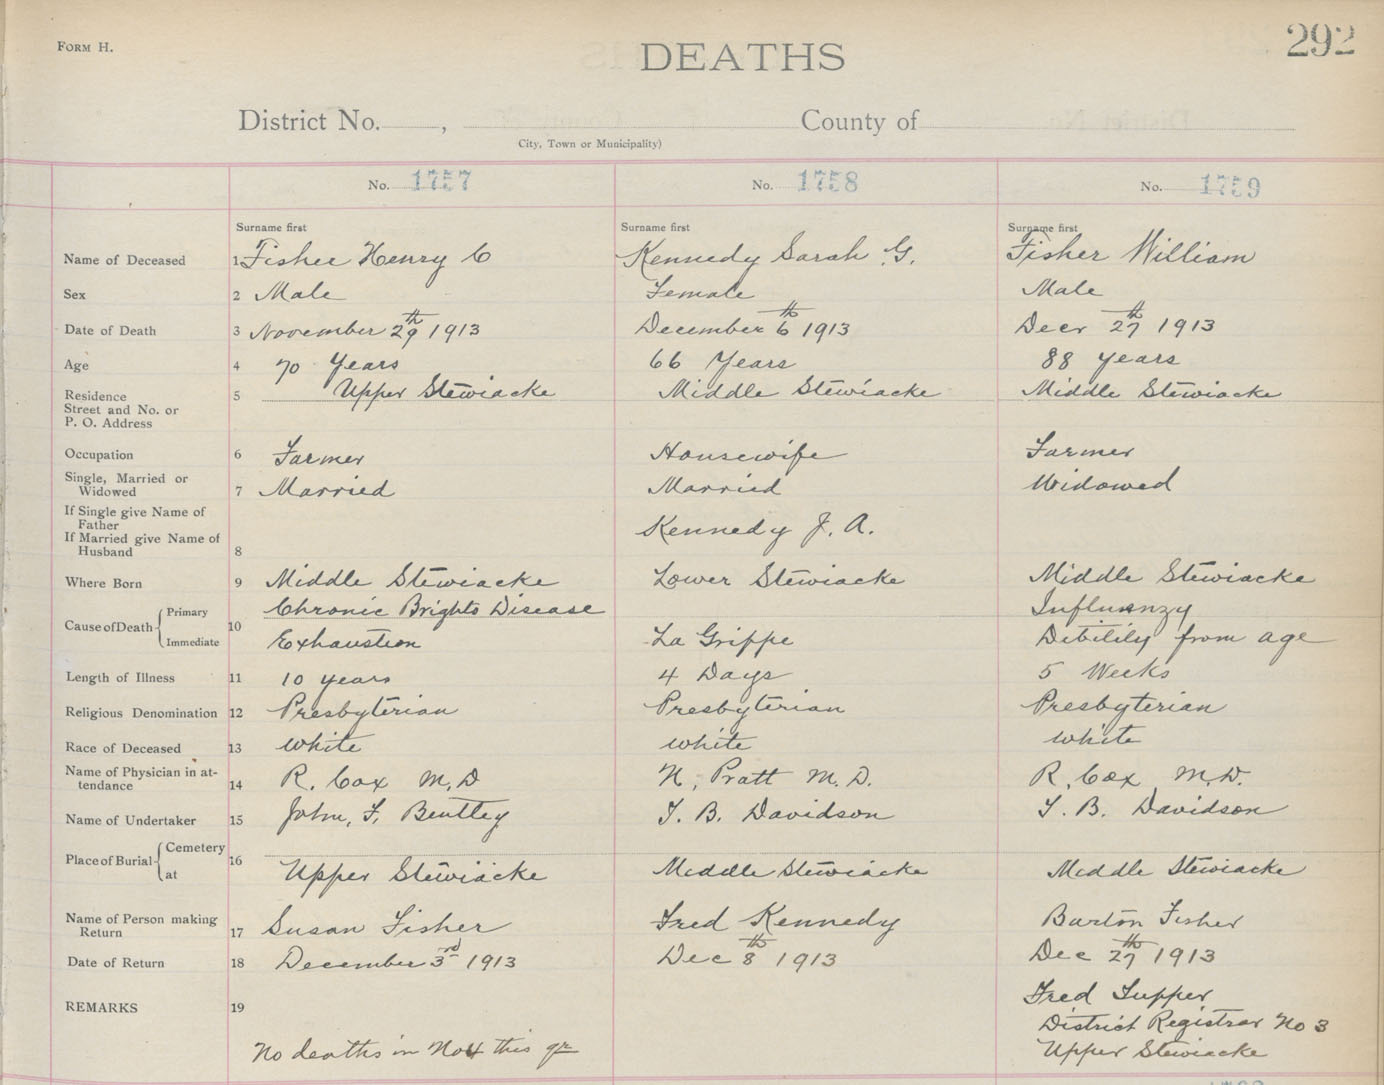 FORM H.
DEATHS
292
District No. , County of
City, Town or Municipality)
No. 1757 No. 1758 No. 1759
Surname first Surname first Surname first
Name of Deceased 1 Fisher Henry C Kennedy Sarah G. Fisher William
Sex 2 Male Female Male
Date of Death 3 November 29th 1913 December 6th 1913 Decr 27th 1913
Age 4 70 Years 66 Years 88 years
Residence 5 Upper Stewiacke Middle Stewiacke Middle Stewiacke
Street and No. or
P. O. Address
Occupation 6 Farmer Housewife Farmer
Single, Married or
Widowed 7 Married Married Widowed
If Single give Name of
Father
If Married give Name of Kennedy J. A.
Husband 8
Where Born 9 Middle Stewiacke Lower Stewiacke Middle Stewiacke
Primary Chronic Brights Disease Influenzy
Cause of Death 10
Immediate Exhaustion La Grippe Debility from age
Length of Illness 11 10 years 4 Days 5 Weeks
Religious Denomination 12 Presbyterian Presbyterian Presbyterian
Race of Deceased 13 white white white
Name of Physician in at-
tendance 14 R. Cox M.D N. Pratt M.D. R. Cox M.D.
Name of Undertaker 15 John. F. Bentley T. B. Davidson T. B. Davidson
Cemetery
Place of Burial 16
at Upper Stewiacke Middle Stewiacke Middle Stewiacke
Name of Person making
Return 17 Susan Fisher Fred Kennedy Burton Fisher
Date of Return 18 December 3rd 1913 Dec 8th 1913 Dec 27th 1913
REMARKS 19 Fred Tupper
District Registrar No 3
No deaths in No 4 this qr Upper Stewiacke